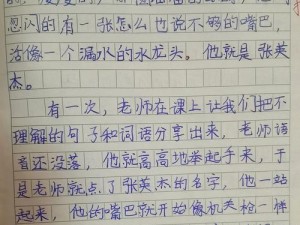 忽闪的有一张怎么也说不够的嘴巴,
活像一个漏水的水龙头。他就是张英
杰。
有一次,老师在课上让我们把不
理解的句子和词语分享出来,老师语
音还没落,他就高高地举起手来,于
是老师就点了张英杰的名字,他一站
起来,他的嘴巴就开始像机关枪一样